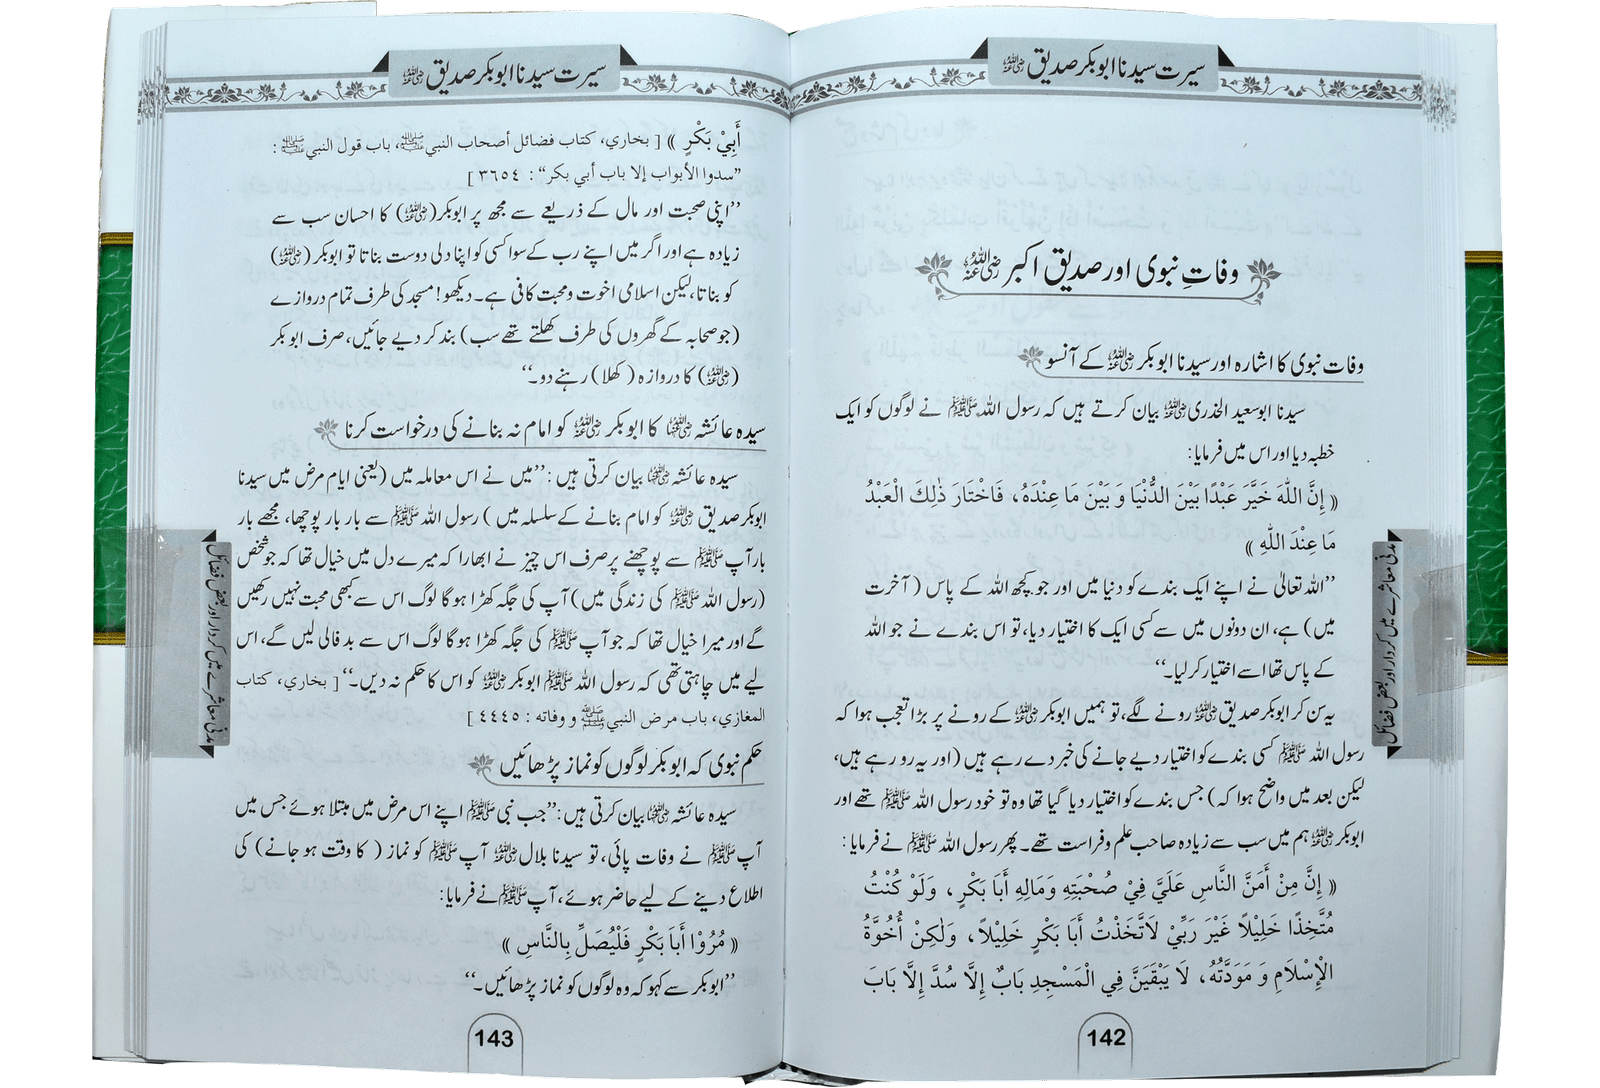 سیرت سیدنا ابوبکر صدیق رضی اللہ عنہ
وفاتِ نبوی اور صدیق اکبر رضی اللہ عنہ
وفات نبوی کا اشارہ اور سیدنا ابوبکر رضی اللہ عنہ کے آنسو
سیدنا ابوسعید الخذری رضی اللہ عنہ بیان کرتے ہیں کہ رسول اللہ ﷺ نے لوگوں کو ایک
خطبہ دیا اور اس میں فرمایا:
« إِنَّ اللّٰهَ خَيَّرَ عَبْدًا بَيْنَ الدُّنْيَا وَ بَيْنَ مَا عِنْدَهُ، فَاخْتَارَ ذٰلِكَ الْعَبْدُ
مَا عِنْدَ اللّٰهِ »
’’اللہ تعالیٰ نے اپنے ایک بندے کو دنیا میں اور جو کچھ اللہ کے پاس (آخرت
میں) ہے، ان دونوں میں سے کسی ایک کا اختیار دیا، تو اس بندے نے جو اللہ
کے پاس تھا اسے اختیار کر لیا۔‘‘
یہ سن کر ابوبکر صدیق رضی اللہ عنہ رونے لگے، تو ہمیں ابوبکر رضی اللہ عنہ کے رونے پر بڑا تعجب ہوا کہ
رسول اللہ ﷺ کسی بندے کو اختیار دیے جانے کی خبر دے رہے ہیں (اور یہ رو رہے ہیں،
لیکن بعد میں واضح ہوا کہ) جس بندے کو اختیار دیا گیا تھا وہ تو خود رسول اللہ ﷺ تھے اور
ابوبکر رضی اللہ عنہ ہم میں سب سے زیادہ صاحب علم وفراست تھے۔ پھر رسول اللہ ﷺ نے فرمایا:
« إِنَّ مِنْ أَمَنِّ النَّاسِ عَلَيَّ فِيْ صُحْبَتِهِ وَمَالِهِ أَبَا بَكْرٍ، وَلَوْ كُنْتُ
مُتَّخِذًا خَلِيْلًا غَيْرَ رَبِّيْ لَاتَّخَذْتُ أَبَا بَكْرٍ خَلِيْلًا، وَلٰكِنْ أُخُوَّةُ
الْإِسْلَامِ وَ مَوَدَّتُهُ، لَا يَبْقَيَنَّ فِي الْمَسْجِدِ بَابٌ إِلَّا سُدَّ إِلَّا بَابَ
مدنی معاشرے میں کردار اور بعض فضائل
142
سیرت سیدنا ابوبکر صدیق رضی اللہ عنہ
أَبِيْ بَكْرٍ » [ بخاري، كتاب فضائل أصحاب النبي ﷺ، باب قول النبي ﷺ :
”سدوا الأبواب إلا باب أبي بكر“ : ٣٦٥٤ ]
’’اپنی صحبت اور مال کے ذریعے سے مجھ پر ابوبکر (رضی اللہ عنہ) کا احسان سب سے
زیادہ ہے اور اگر میں اپنے رب کے سوا کسی کو اپنا دلی دوست بناتا تو ابوبکر (رضی اللہ عنہ)
کو بناتا، لیکن اسلامی اخوت ومحبت کافی ہے۔ دیکھو! مسجد کی طرف تمام دروازے
(جو صحابہ کے گھروں کی طرف کھلتے تھے سب) بند کر دیے جائیں، صرف ابوبکر
(رضی اللہ عنہ) کا دروازہ (کھلا) رہنے دو۔‘‘
سیدہ عائشہ رضی اللہ عنہا کا ابوبکر رضی اللہ عنہ کو امام نہ بنانے کی درخواست کرنا
سیدہ عائشہ رضی اللہ عنہا بیان کرتی ہیں: ’’میں نے اس معاملہ میں (یعنی ایام مرض میں سیدنا
ابوبکر صدیق رضی اللہ عنہ کو امام بنانے کے سلسلہ میں) رسول اللہ ﷺ سے بار بار پوچھا، مجھے بار
بار آپ ﷺ سے پوچھنے پر صرف اس چیز نے ابھارا کہ میرے دل میں خیال تھا کہ جو شخص
(رسول اللہ ﷺ کی زندگی میں) آپ کی جگہ کھڑا ہو گا لوگ اس سے کبھی محبت نہیں رکھیں
گے اور میرا خیال تھا کہ جو آپ ﷺ کی جگہ کھڑا ہو گا لوگ اس سے بد فالی لیں گے، اس
لیے میں چاہتی تھی کہ رسول اللہ ﷺ ابوبکر رضی اللہ عنہ کو اس کا حکم نہ دیں۔‘‘ [ بخاري، كتاب
المغازي، باب مرض النبي ﷺ و وفاته : ٤٤٤٥ ]
حکم نبوی کہ ابوبکر لوگوں کو نماز پڑھائیں
سیدہ عائشہ رضی اللہ عنہا بیان کرتی ہیں: ’’جب نبی ﷺ اپنے اس مرض میں مبتلا ہوئے جس میں
آپ ﷺ نے وفات پائی، تو سیدنا بلال رضی اللہ عنہ آپ ﷺ کو نماز (کا وقت ہو جانے) کی
اطلاع دینے کے لیے حاضر ہوئے، آپ ﷺ نے فرمایا:
« مُرُوْا أَبَا بَكْرٍ فَلْيُصَلِّ بِالنَّاسِ »
’’ابوبکر سے کہو کہ وہ لوگوں کو نماز پڑھائیں۔‘‘
مدنی معاشرے میں کردار اور بعض فضائل
143